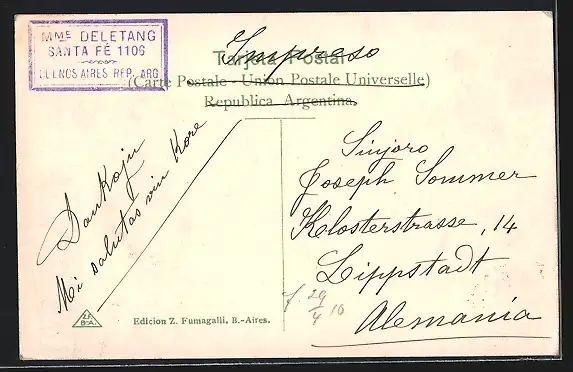 Mme DELETANG
SANTA FÉ 1106
BUENOS AIRES REP. ARG
Impreso
Tarjeta Postal
(Carte Postale - Union Postale Universelle)
Republica Argentina.
Dankoju
Mi salutas vin Kore
Sinjoro
Joseph Sommer
Klosterstrasse, 14
Lippstadt
Alemania
29/4 10
Z.F.
B.A.
Edicion Z. Fumagalli. B.-Aires.